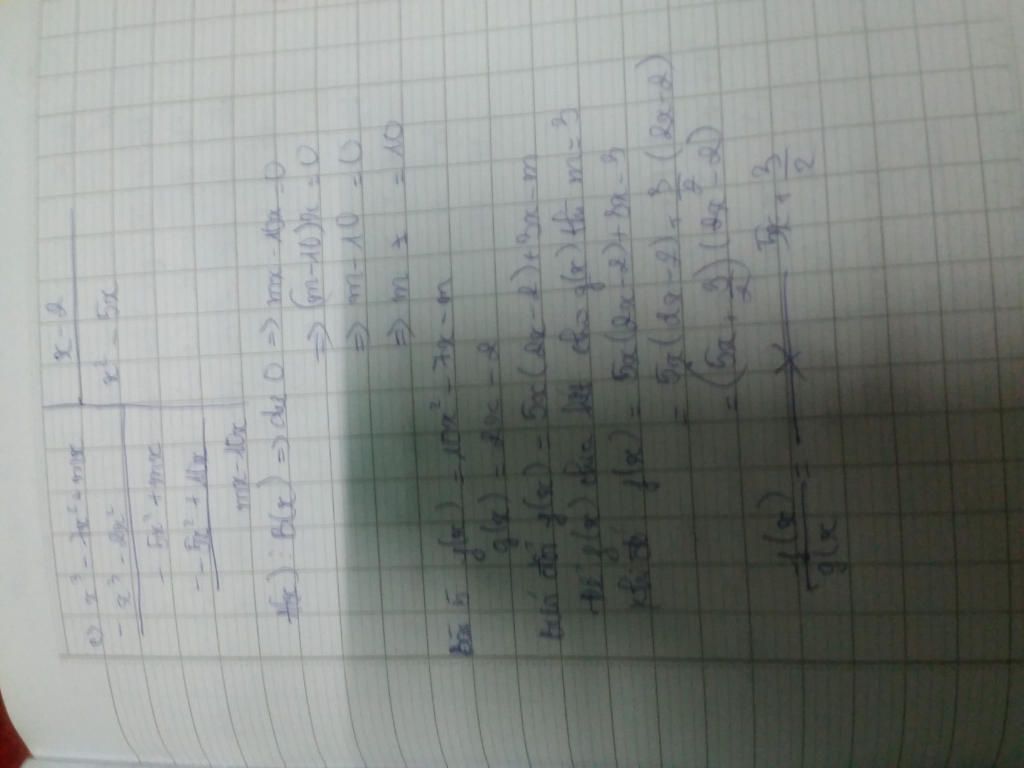 c) x³ - 7x² + mx | x - 2
- x³ - 2x² | x² - 5x
- 5x² + mx
- - 5x² + 10x
mx - 10x
A(x) : B(x) => dư 0 => mx - 10x = 0
=> (m - 10)x = 0
=> m - 10 = 0
=> m = 10
Bài 5 f(x) = 10x² - 7x - m
g(x) = 2x - 2
Biến đổi f(x) = 5x(2x - 2) + 3x - m
Để f(x) chia hết cho g(x) thì m = 3
Khi đó f(x) = 5x(2x - 2) + 3x - 3
= 5x(2x - 2) + 3/2 (2x - 2)
= (5x + 3/2)(2x - 2)
f(x)/g(x = 5x + 3/2